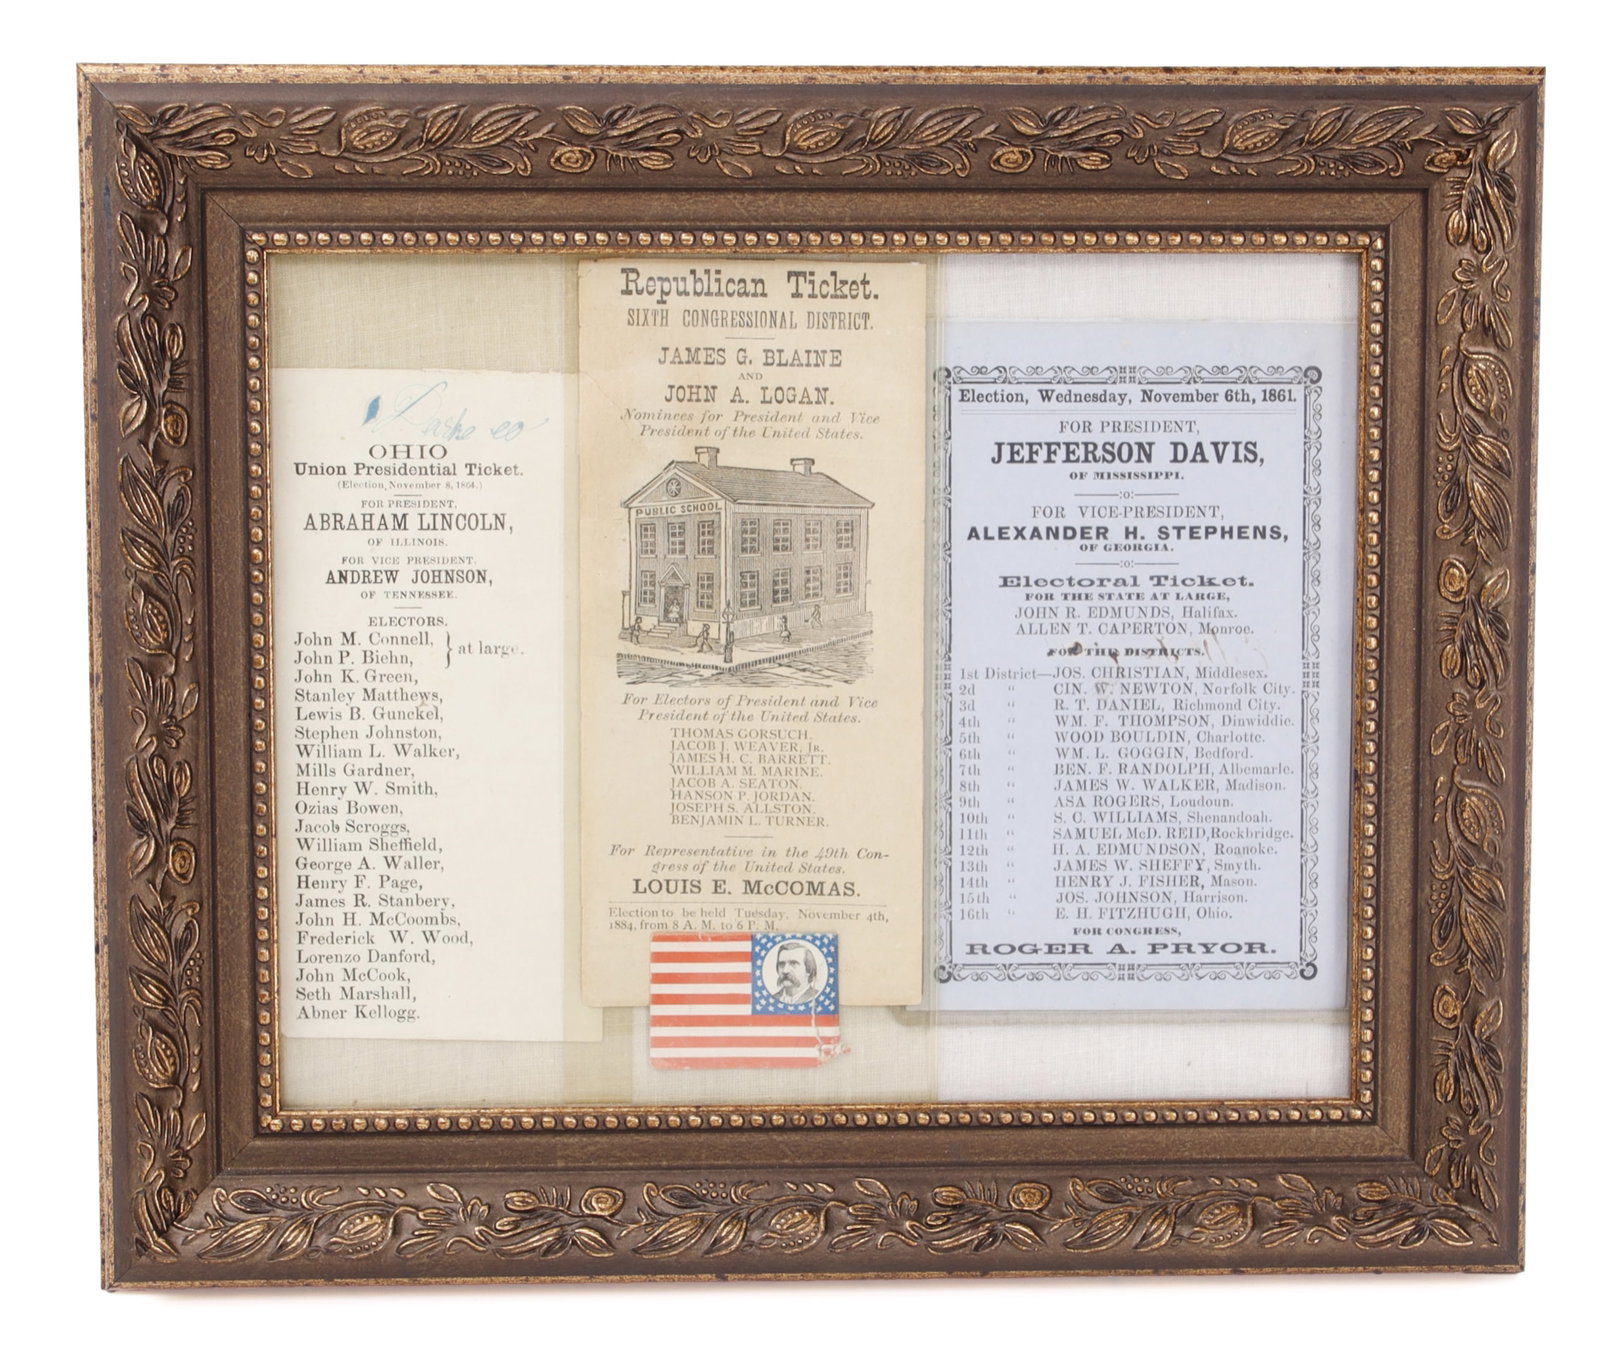 OHIO
Union Presidential Ticket.
(Election, November 8, 1864.)
FOR PRESIDENT,
ABRAHAM LINCOLN,
OF ILLINOIS.
FOR VICE PRESIDENT.
ANDREW JOHNSON,
OF TENNESSEE.
ELECTORS.
John M. Connell, } at large.
John P. Biehn,
John K. Green,
Stanley Matthews,
Lewis B. Gunckel,
Stephen Johnston,
William L. Walker,
Mills Gardner,
Henry W. Smith,
Ozias Bowen,
Jacob Scroggs,
William Sheffield,
George A. Waller,
Henry F. Page,
James R. Stanbery,
John H. McCoombs,
Frederick W. Wood,
Lorenzo Danford,
John McCook,
Seth Marshall,
Abner Kellogg.
Republican Ticket.
SIXTH CONGRESSIONAL DISTRICT.
JAMES G. BLAINE
AND
JOHN A. LOGAN.
Nominees for President and Vice
President of the United States.
PUBLIC SCHOOL
For Electors of President and Vice
President of the United States.
THOMAS GORSUCH.
JACOB J. WEAVER, JR.
JAMES H. C. BARRETT.
WILLIAM M. MARINE.
JACOB A. SEATON.
HANSON P. JORDAN.
JOSEPH S. ALLSTON.
BENJAMIN L. TURNER.
For Representative in the 49th Con-
gress of the United States.
LOUIS E. McCOMAS.
Election to be held Tuesday, November 4th,
1884, from 8 A. M. to 6 P. M.
Election, Wednesday, November 6th, 1861.
FOR PRESIDENT,
JEFFERSON DAVIS,
OF MISSISSIPPI.
:o:
FOR VICE-PRESIDENT,
ALEXANDER H. STEPHENS,
OF GEORGIA.
:o:
Electoral Ticket.
FOR THE STATE AT LARGE,
JOHN R. EDMUNDS, Halifax.
ALLEN T. CAPERTON, Monroe.
FOR THE DISTRICTS.
1st District—JOS. CHRISTIAN, Middlesex.
2d “ CIN. W. NEWTON, Norfolk City.
3d “ R. T. DANIEL, Richmond City.
4th “ WM. F. THOMPSON, Dinwiddie.
5th “ WOOD BOULDIN, Charlotte.
6th “ WM. L. GOGGIN, Bedford.
7th “ BEN. F. RANDOLPH, Albemarle.
8th “ JAMES W. WALKER, Madison.
9th “ ASA ROGERS, Loudoun.
10th “ S. C. WILLIAMS, Shenandoah.
11th “ SAMUEL McD. REID, Rockbridge.
12th “ H. A. EDMUNDSON, Roanoke.
13th “ JAMES W. SHEFFY, Smyth.
14th “ HENRY J. FISHER, Mason.
15th “ JOS. JOHNSON, Harrison.
16th “ E. H. FITZHUGH, Ohio.
FOR CONGRESS,
ROGER A. PRYOR.